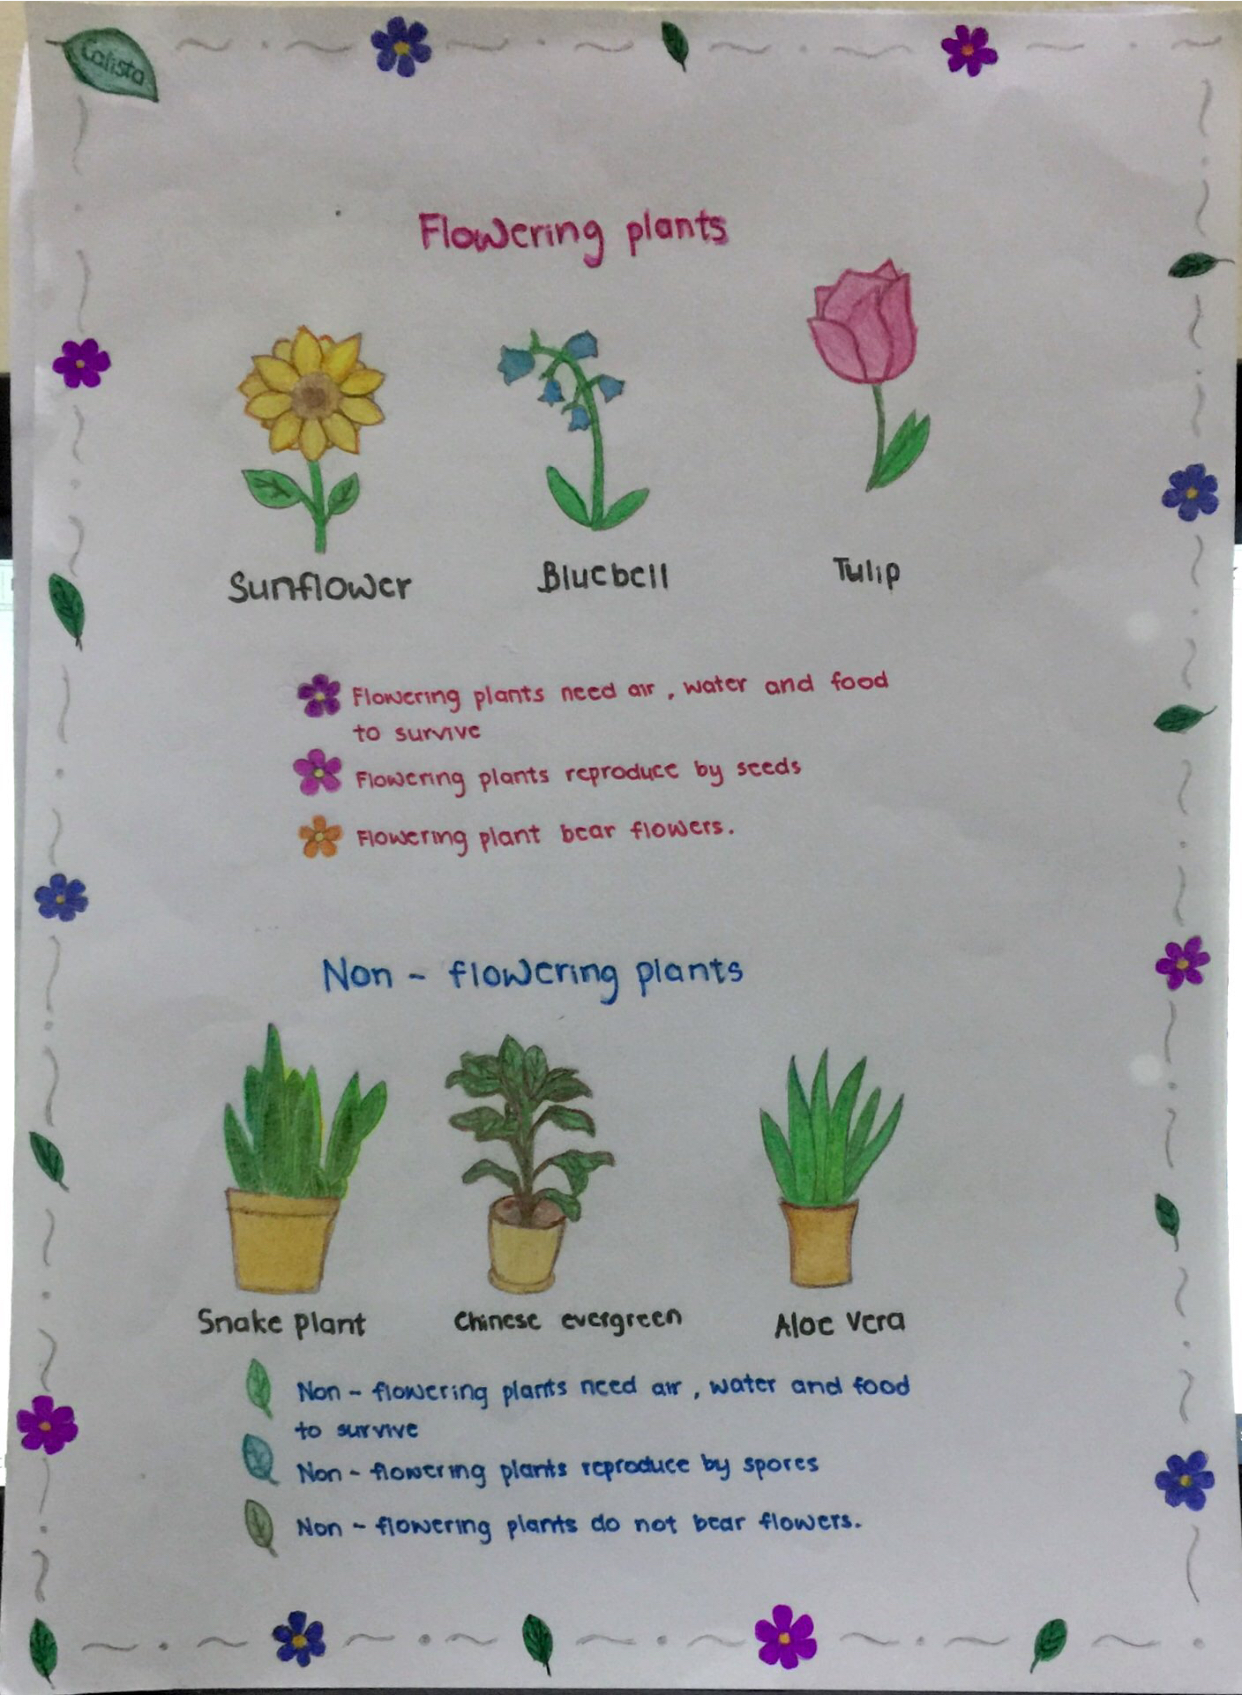 Calista
Flowering plants
Sunflower Bluebell Tulip
Flowering plants need air, water and food
to survive
Flowering plants reproduce by seeds
Flowering plant bear flowers.
Non - flowering plants
Snake plant Chinese evergreen Aloe Vera
Non - flowering plants need air, water and food
to survive
Non - flowering plants reproduce by spores
Non - flowering plants do not bear flowers.